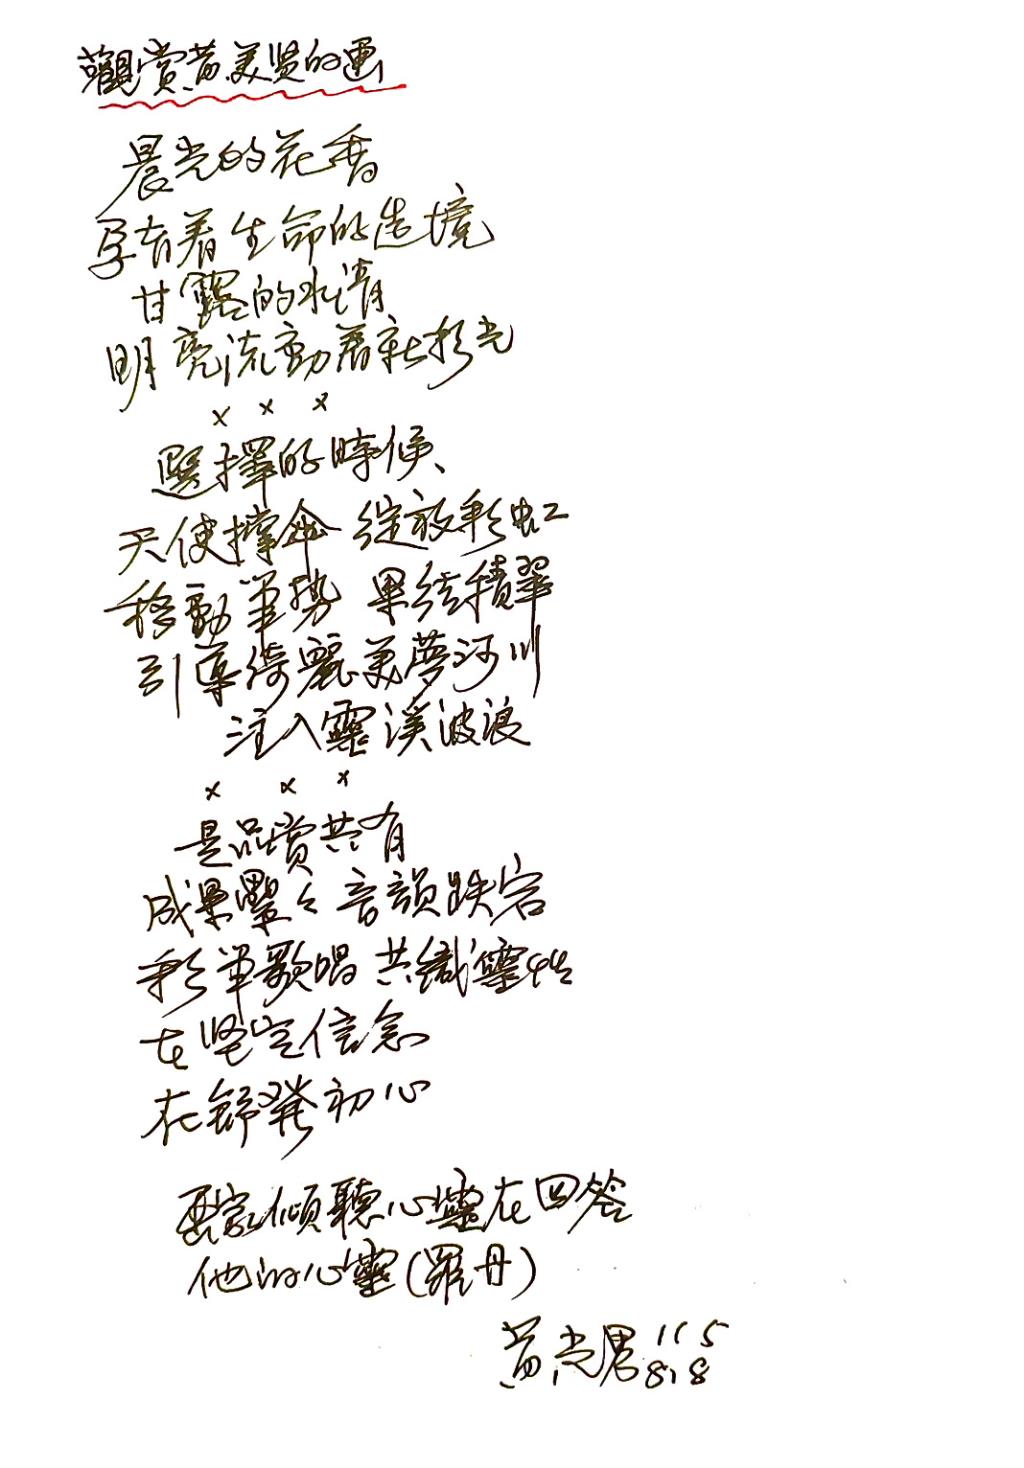 觀賞黃美賢的畫
晨光的花香
孕育着生命的造境
甘露的水清
明亮流動着彩光
× × ×
選擇的時候、
天使撐傘 綻放彩虹
移動筆勢 果結積翠
引導綺麗美夢河川
注入靈溪波浪
× × ×
是品賞共有
成果纍々 音韻跌宕
彩筆歌唱 共織靈性
在堅定信念
在舒發初心
畫家傾聽心靈在回答
他的心靈(羅丹)
黃光男 115
8,8